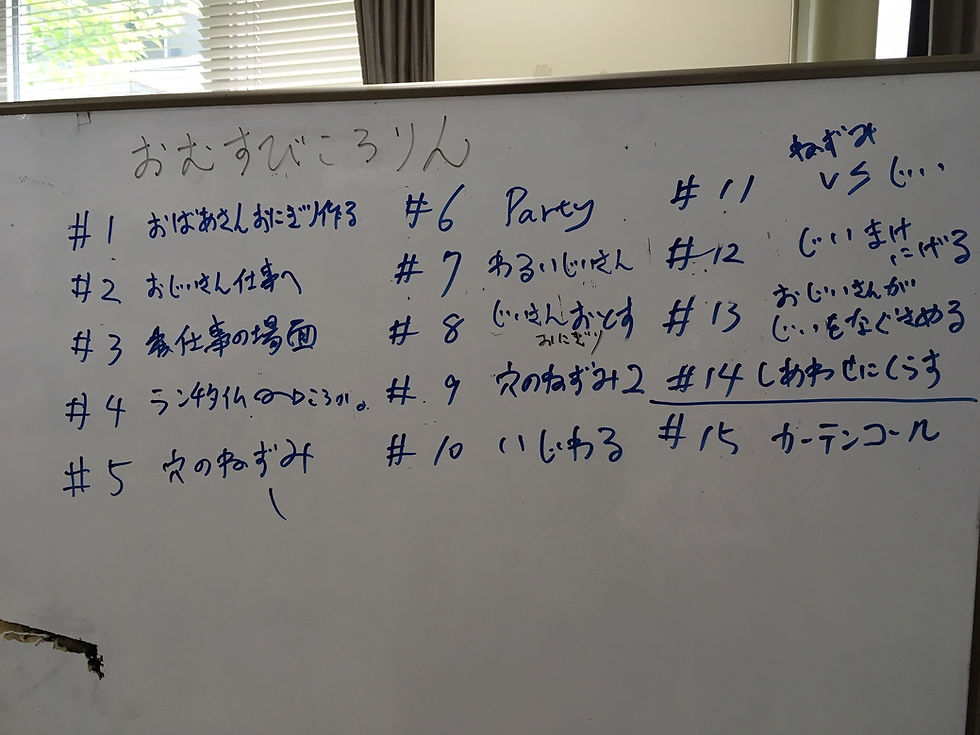 おむすびころりん
#1 おばあさんおにぎり作る
#2 おじいさん仕事へ
#3 仕事の場面
#4 ランチタイム ころがる
#5 穴のねずみ
#6 Party
#7 わるいじいさん
#8 じいさんおとす
おにぎり
#9 穴のねずみ2
#10 いじわる
#11 ねずみ
vs じい
#12 じいまけ
にげる
#13 おじいさんが
じいをなぐさめる
#14 しあわせにくらす
#15 カーテンコール